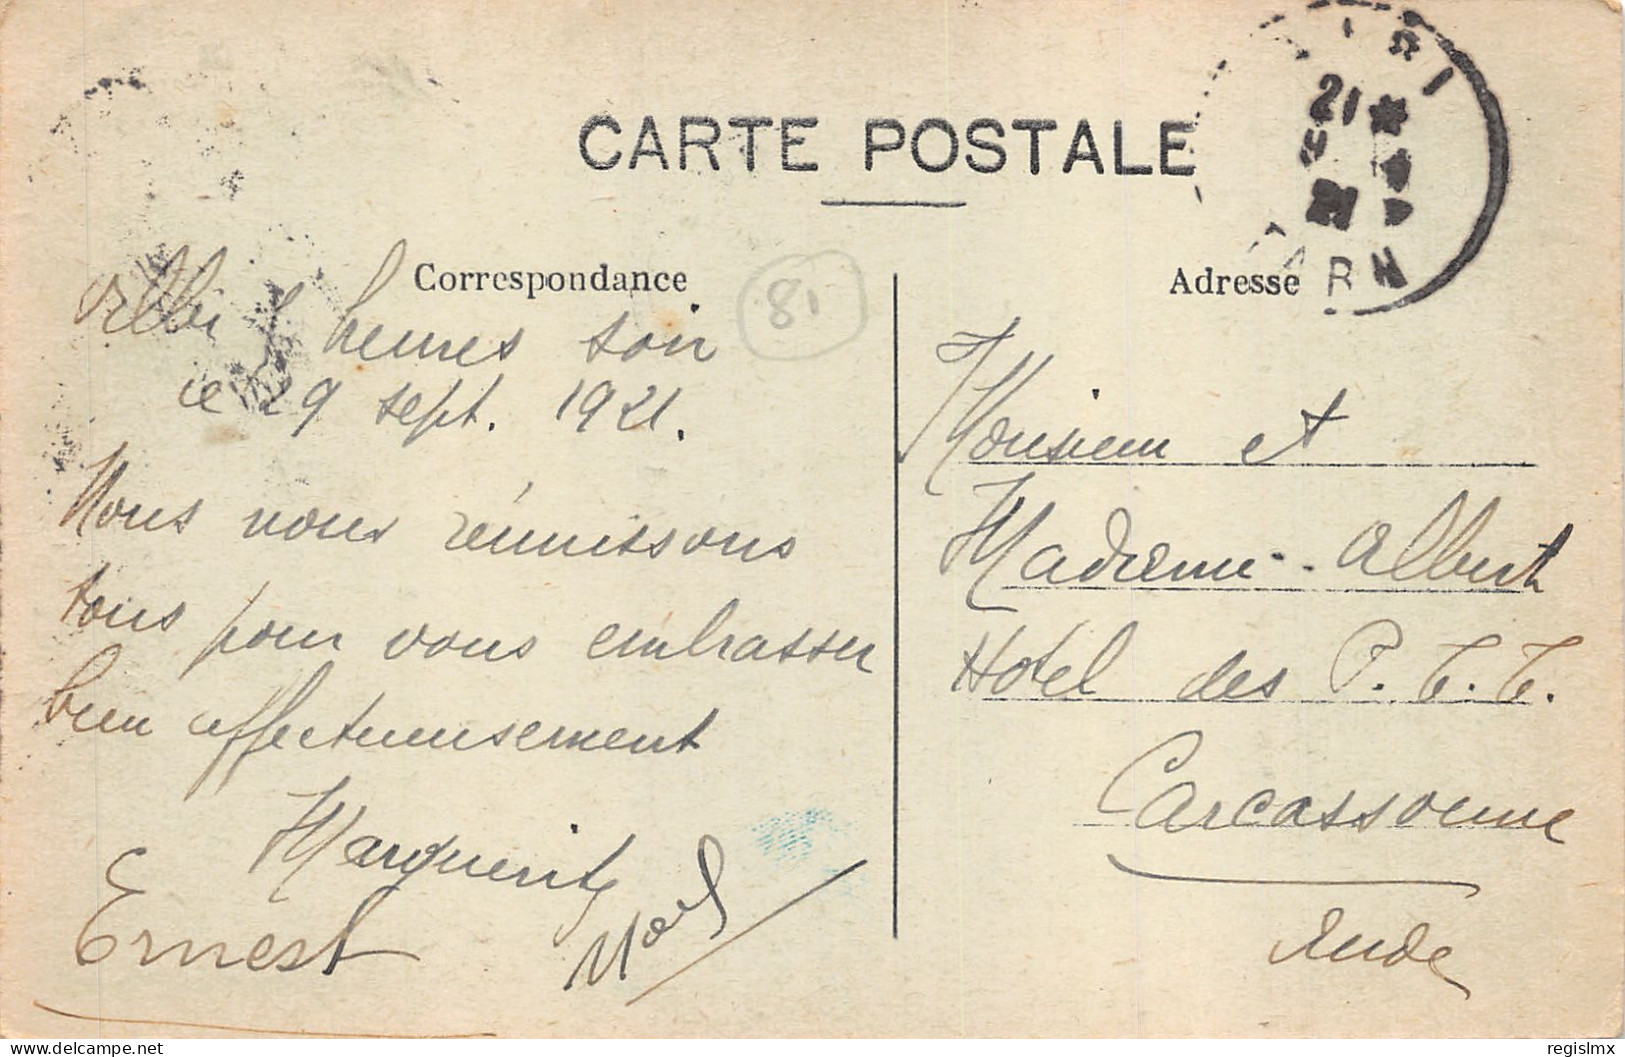 CARTE POSTALE
Correspondance
81
Albi 7 heures soir
ce 29 sept. 1921.
Nous nous réunissons
tous pour vous embrasser
bien affectueusement
Marguerite
Ernest
Noël
Adresse
21
TARN
Monsieur et
Madame Albert
Hotel des P.T.T.
Carcassonne
Aude
www.delcampe.net
regislmx